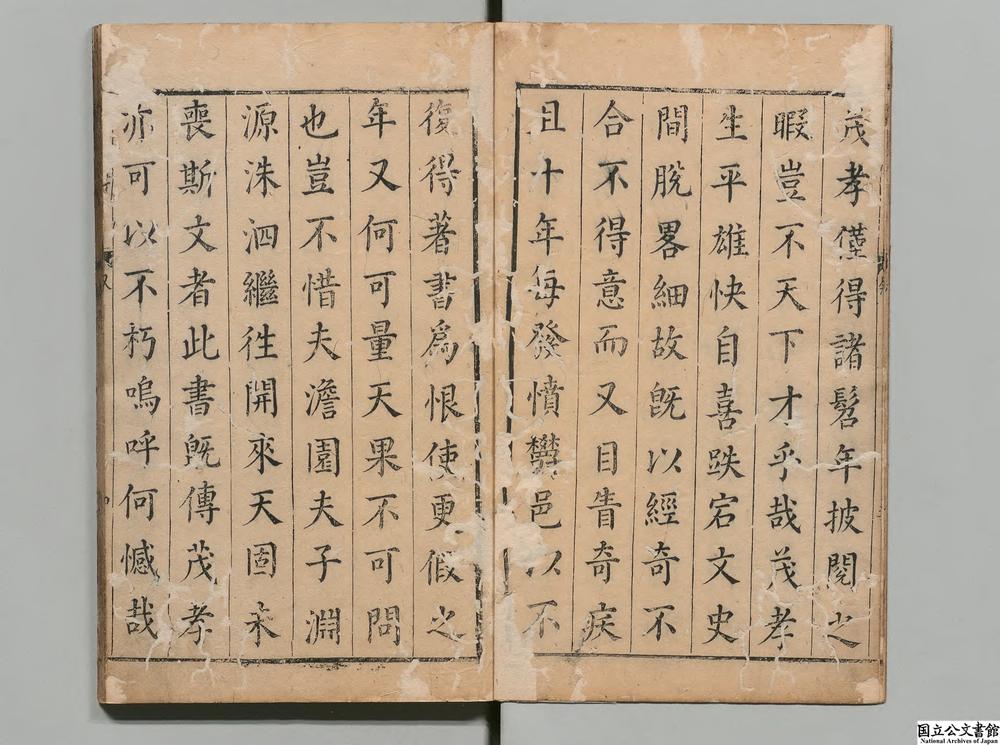 茂孝僅得諸髫年披閱之
暇豈不天下才乎哉茂孝
生平雄快自喜跌宕文史
間脫畧細故旣以經奇不
合不得意而又目眚奇疾
且十年每發憤欝邑以不
復得著書爲恨使更假之
年又何可量天果不可問
也豈不惜夫澹園夫子淵
源洙泗繼徃開來天固未
喪斯文者此書旣傳茂孝
亦可以不朽嗚呼何憾哉
国立公文書館
National Archives of Japan